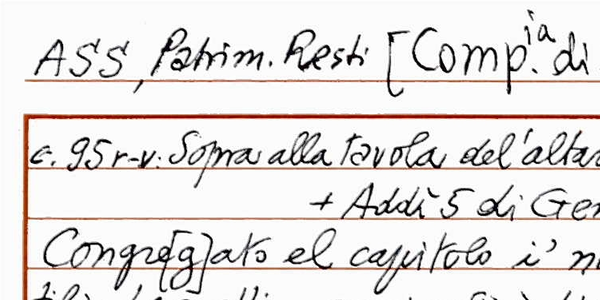 ASS, Patrim. Resti [Comp.ia di
c. 95r-v: Sopra alla tavola del'altar
+ Addì 5 di Gen
Congre[g]ato el capitolo i' n